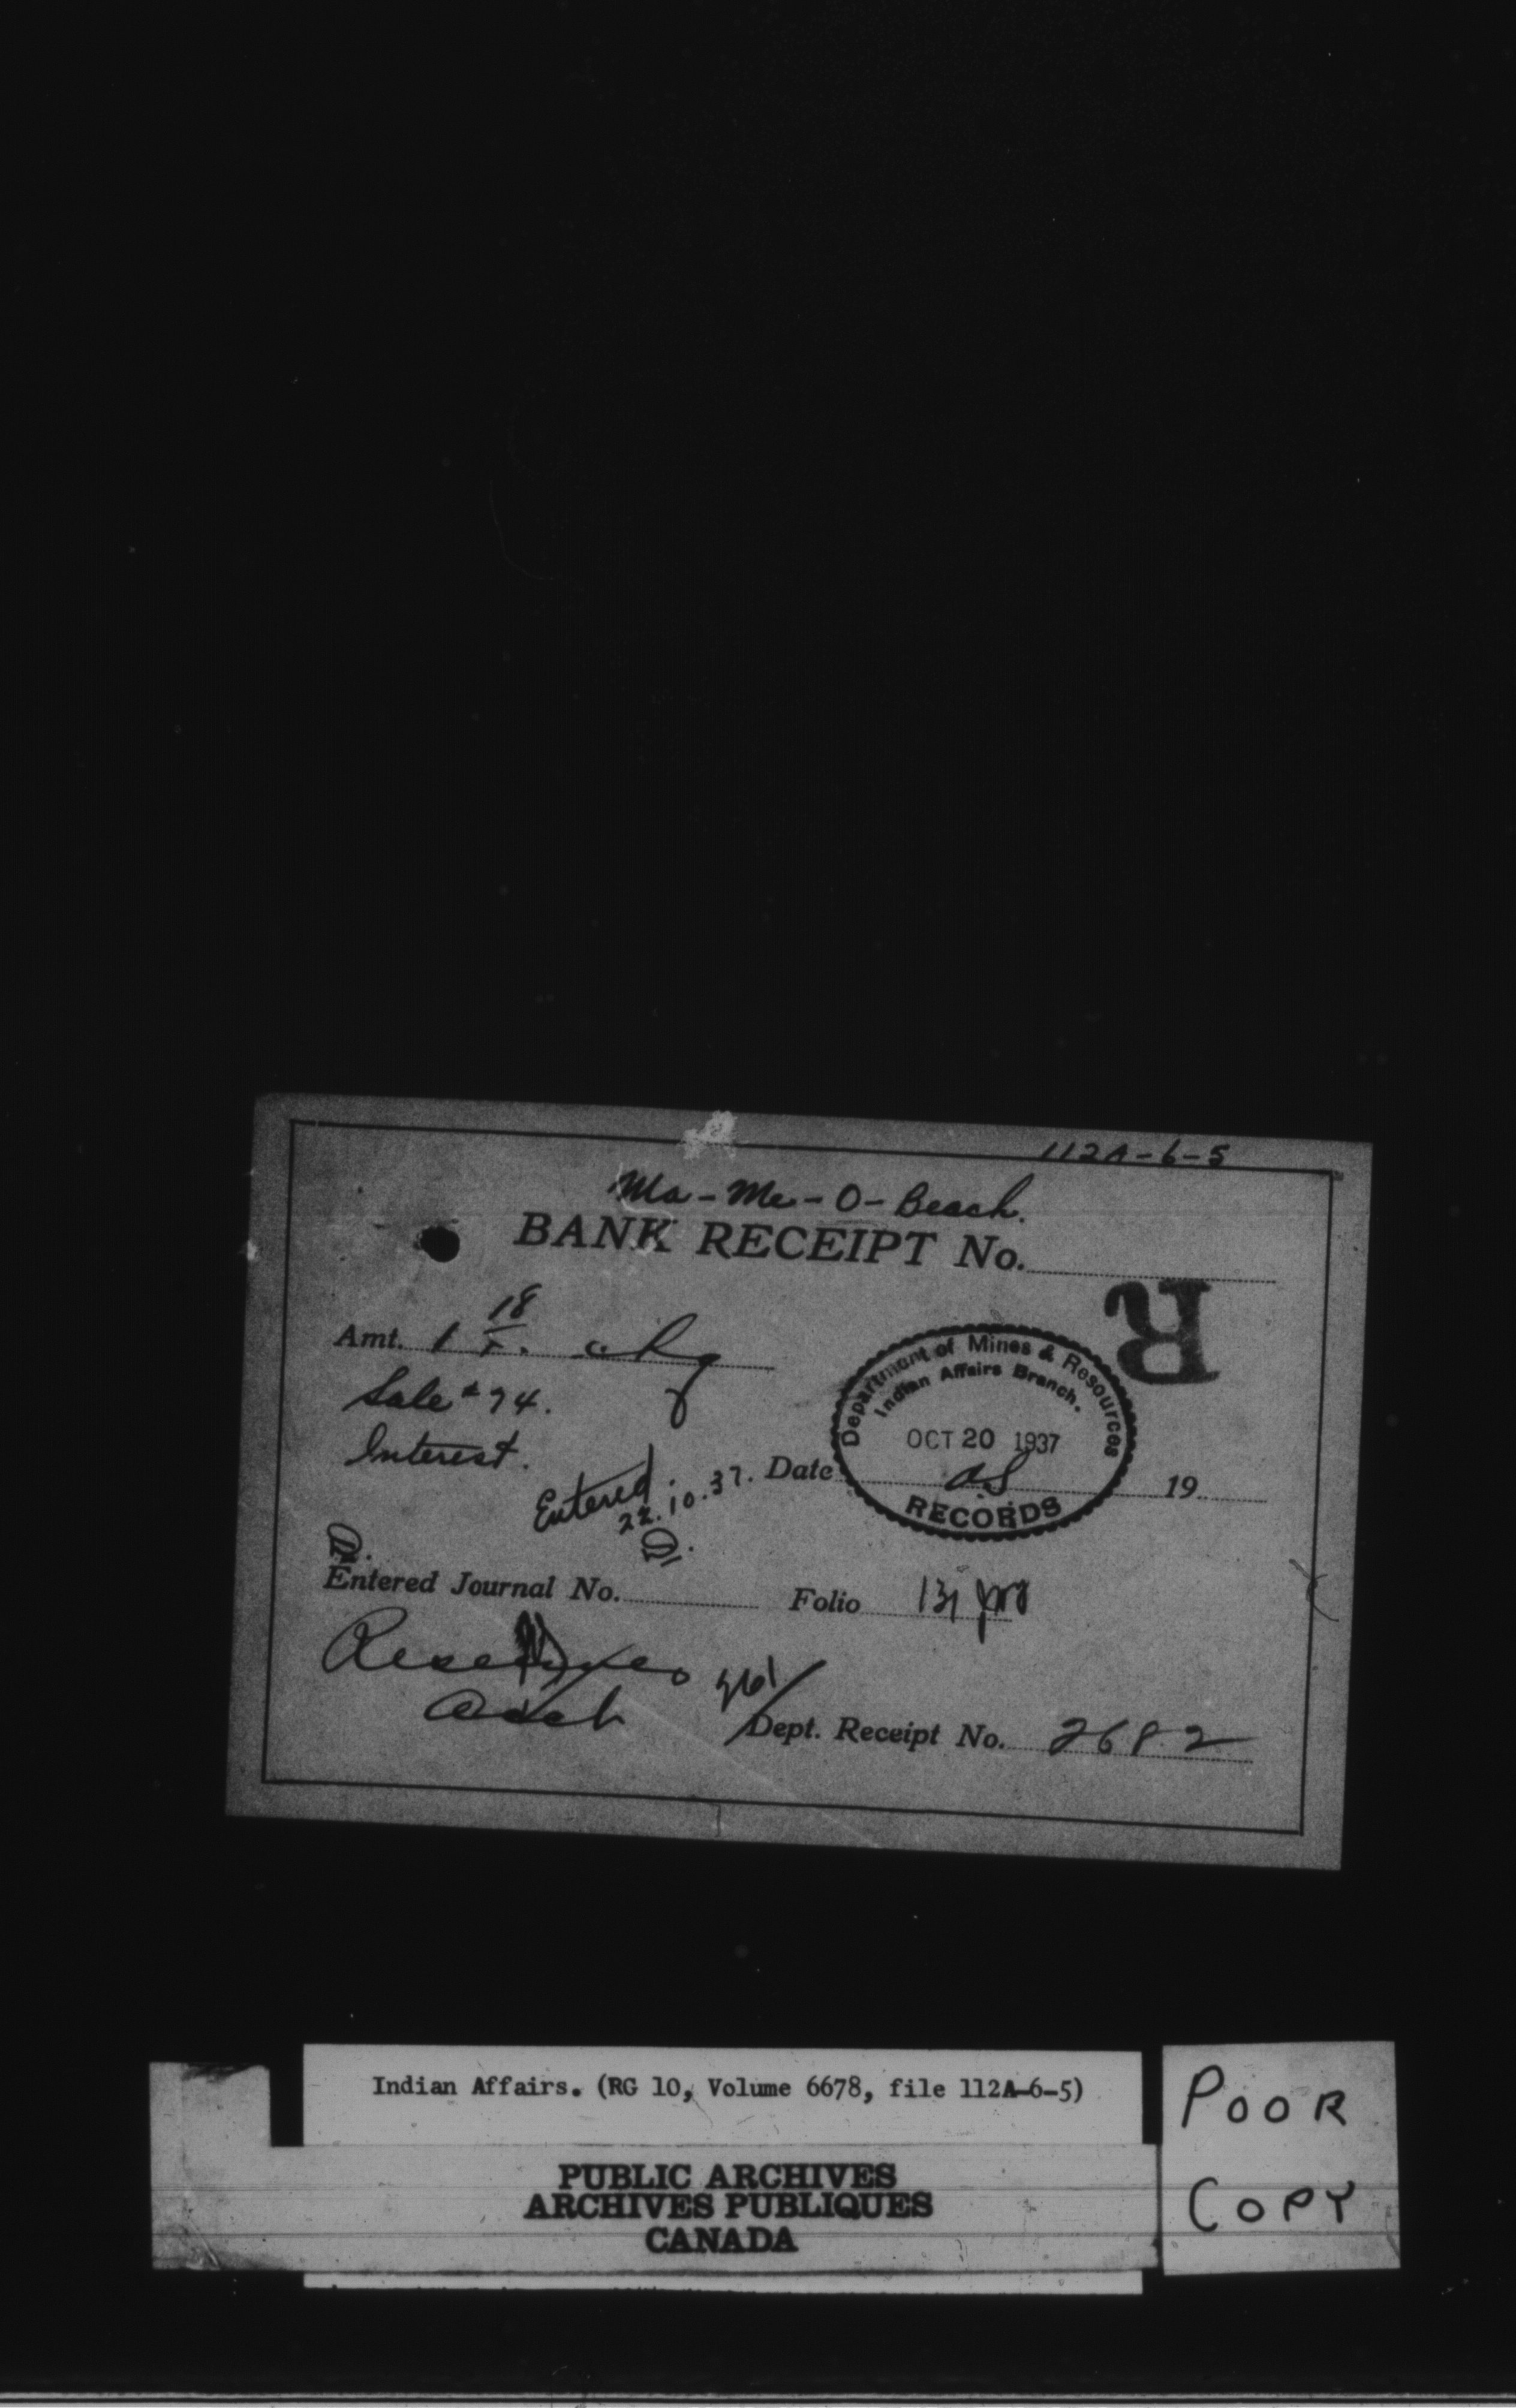 112A-6-5
Ma-Me-O-Beach.
BANK RECEIPT No.
R
Amt. 1 18/x. chq
Sale #74.
Interest.
Department of Mines & Resources
Indian Affairs Branch.
OCT 20 1937
RECORDS
Date 19
Entered
22.10.37.
Entered Journal No.
Folio 131
Reserves
Dept. Receipt No. 2682
Indian Affairs. (RG 10, Volume 6678, file 112A-6-5)
PUBLIC ARCHIVES
ARCHIVES PUBLIQUES
CANADA
POOR
COPY